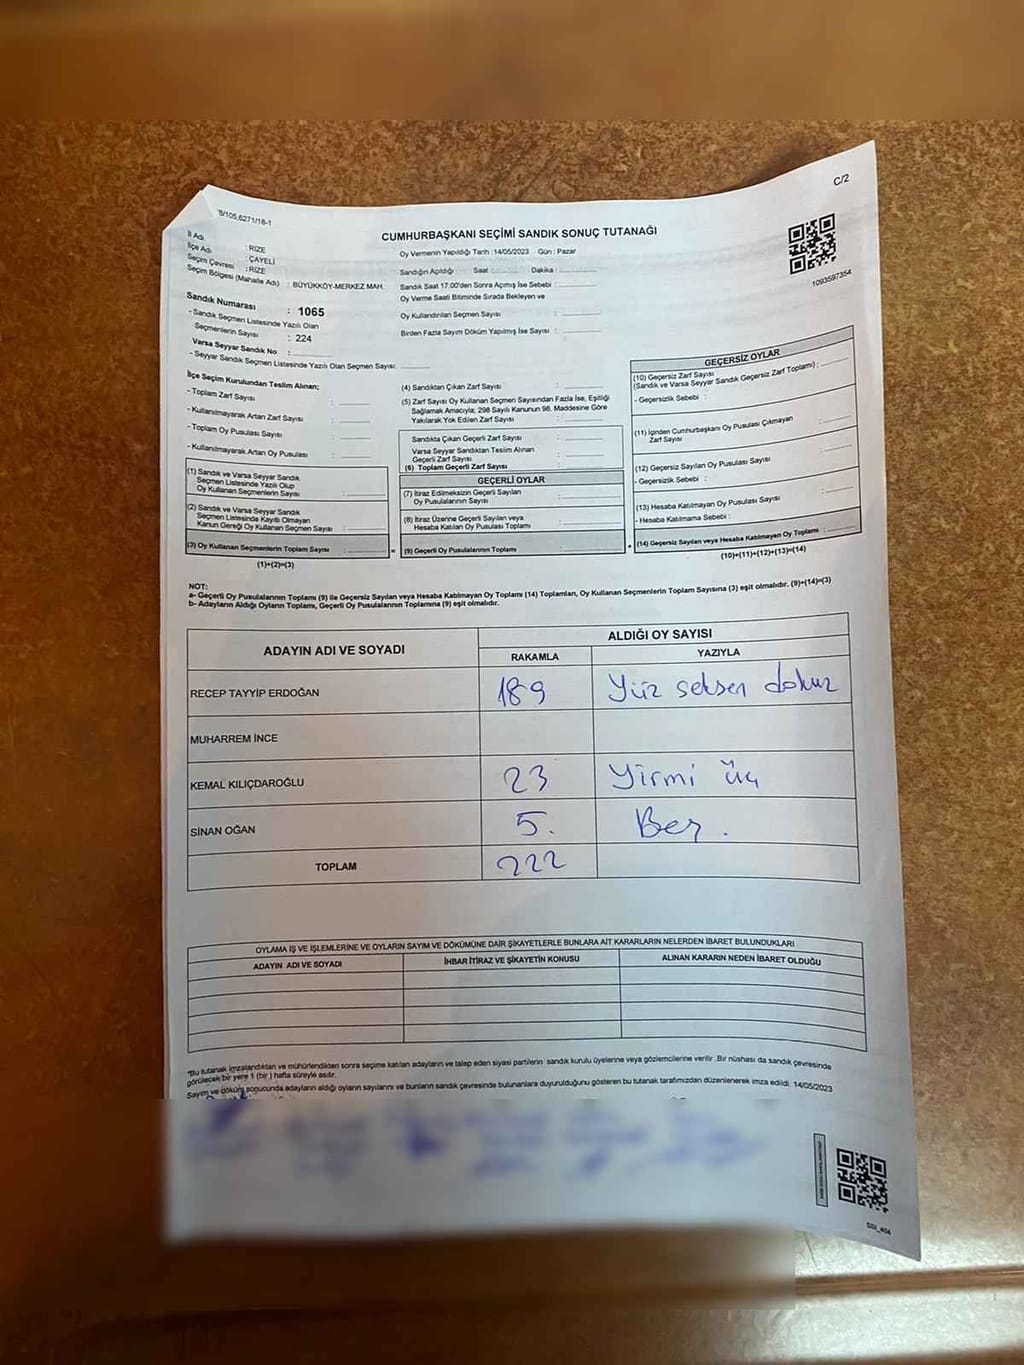 C/2
CUMHURBAŞKANI SEÇİMİ SANDIK SONUÇ TUTANAĞI
1093597354
İl Adı : RİZE
İlçe Adı : ÇAYELİ
Seçim Çevresi : RİZE
Seçim Bölgesi (Mahalle Adı) : BÜYÜKKÖY-MERKEZ MAH.
Sandık Numarası : 1065
- Sandık Seçmen Listesinde Yazılı Olan
Seçmenlerin Sayısı : 224
Varsa Seyyar Sandık No :
- Seyyar Sandık Seçmen Listesinde Yazılı Olan Seçmen Sayısı:
Oy Vermenin Yapıldığı Tarih :14/05/2023 Gün : Pazar
Sandığın Açıldığı Saat Dakika :
Sandık Saat 17:00'den Sonra Açımış İse Sebebi :
Oy Verme Saati Bitiminde Sırada Bekleyen ve
Oy Kullandırılan Seçmen Sayısı :
Birden Fazla Sayım Döküm Yapılmış İse Sayısı :
İlçe Seçim Kurulundan Teslim Alınan;
- Toplam Zarf Sayısı :
- Kullanılmayarak Artan Zarf Sayısı :
- Toplam Oy Pusulası Sayısı :
- Kullanılmayarak Artan Oy Pusulası :
(1) Sandık ve Varsa Seyyar Sandık
Seçmen Listesinde Yazılı Olup
Oy Kullanan Seçmenlerin Sayısı :
(2) Sandık ve Varsa Seyyar Sandık
Seçmen Listesinde Kayıtlı Olmayan
Kanun Gereği Oy Kullanan Seçmen Sayısı :
(3) Oy Kullanan Seçmenlerin Toplam Sayısı :
(1)+(2)=(3)
(4) Sandıktan Çıkan Zarf Sayısı :
(5) Zarf Sayısı Oy Kullanan Seçmen Sayısından Fazla İse, Eşitliği
Sağlamak Amacıyla; 298 Sayılı Kanunun 98. Maddesine Göre
Yakılarak Yok Edilen Zarf Sayısı :
Sandıkta Çıkan Geçerli Zarf Sayısı :
Varsa Seyyar Sandıktan Teslim Alınan
Geçerli Zarf Sayısı :
(6) Toplam Geçerli Zarf Sayısı :
GEÇERLİ OYLAR
(7) İtiraz Edilmeksizin Geçerli Sayılan
Oy Pusulalarının Sayısı :
(8) İtiraz Üzerine Geçerli Sayılan veya
Hesaba Katılan Oy Pusulası Toplamı :
= (9) Geçerli Oy Pusulalarının Toplamı :
GEÇERSİZ OYLAR
(10) Geçersiz Zarf Sayısı
(Sandık ve Varsa Seyyar Sandık Geçersiz Zarf Toplamı) :
- Geçersizlik Sebebi :
(11) İçinden Cumhurbaşkanı Oy Pusulası Çıkmayan
Zarf Sayısı :
(12) Geçersiz Sayılan Oy Pusulası Sayısı :
- Geçersizlik Sebebi :
(13) Hesaba Katılmayan Oy Pusulası Sayısı :
- Hesaba Katılmama Sebebi :
+ (14) Geçersiz Sayılan veya Hesaba Katılmayan Oy Toplamı :
(10)+(11)+(12)+(13)=(14)
NOT:
a- Geçerli Oy Pusulalarının Toplamı (9) ile Geçersiz Sayılan veya Hesaba Katılmayan Oy Toplamı (14) Toplamları, Oy Kullanan Seçmenlerin Toplam Sayısına (3) eşit olmalıdır. (9)+(14)=(3)
b- Adayların Aldığı Oyların Toplamı, Geçerli Oy Pusulalarının Toplamına (9) eşit olmalıdır.
ADAYIN ADI VE SOYADI ALDIĞI OY SAYISI
RAKAMLA YAZIYLA
RECEP TAYYİP ERDOĞAN 189 Yüz seksen dokuz
MUHARREM İNCE
KEMAL KILIÇDAROĞLU 23 Yirmi üç
SİNAN OĞAN 5. Beş.
TOPLAM 222
OYLAMA İŞ VE İŞLEMLERİNE VE OYLARIN SAYIM VE DÖKÜMÜNE DAİR ŞİKAYETLERLE BUNLARA AİT KARARLARIN NELERDEN İBARET BULUNDUKLARI
ADAYIN ADI VE SOYADI İHBAR İTİRAZ VE ŞİKAYETİN KONUSU ALINAN KARARIN NEDEN İBARET OLDUĞU
*Bu tutanak imzalandıktan ve mühürlendikten sonra seçime katılan adayların ve talep eden siyasi partilerin sandık kurulu üyelerine veya gözlemcilerine verilir. Bir nüshası da sandık çevresinde
görülecek bir yere 1 (bir) hafta süreyle asılır.
Sayım ve döküm sonucunda adayların aldığı oyların sayılarını ve bunların sandık çevresinde bulunanlara duyurulduğunu gösteren bu tutanak tarafımızdan düzenlenerek imza edildi. 14/05/2023